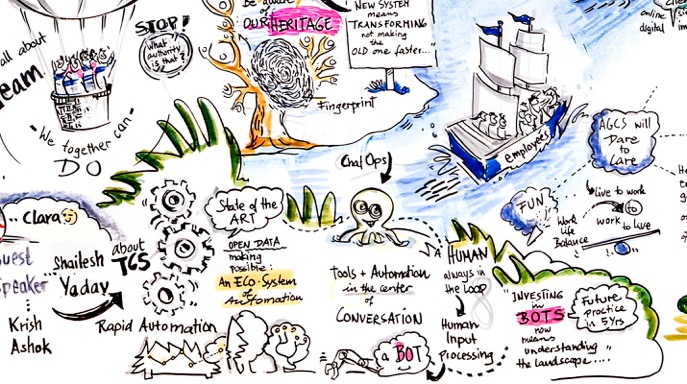 Be aware
of
OUR HERITAGE
Fingerprint
NEW SYSTEM
means
TRANSFORMING
not making
the
OLD one faster..."
STOP!
What
authority
is that?
all about
Team
"We together can"
DO
employees
online
digital
AGCS will
Dare
to
Care
FUN
Work
Life
Balance
live to work
to
work to live
Chat Ops
.. Clara
Guest
Speaker
Krish
Ashok
Shailesh
Yadav
about
TCS
Rapid Automation
State of the
ART
OPEN DATA
making
possible:
An ECO-System
of
Automation
Tools + Automation
in the center
of
CONVERSATION
a BOT
HUMAN
always in
the Loop
Human
Input
Processing
"INVESTING
in
BOTS
now
means
understanding
the landscape....
Future
practice
in 5 yrs